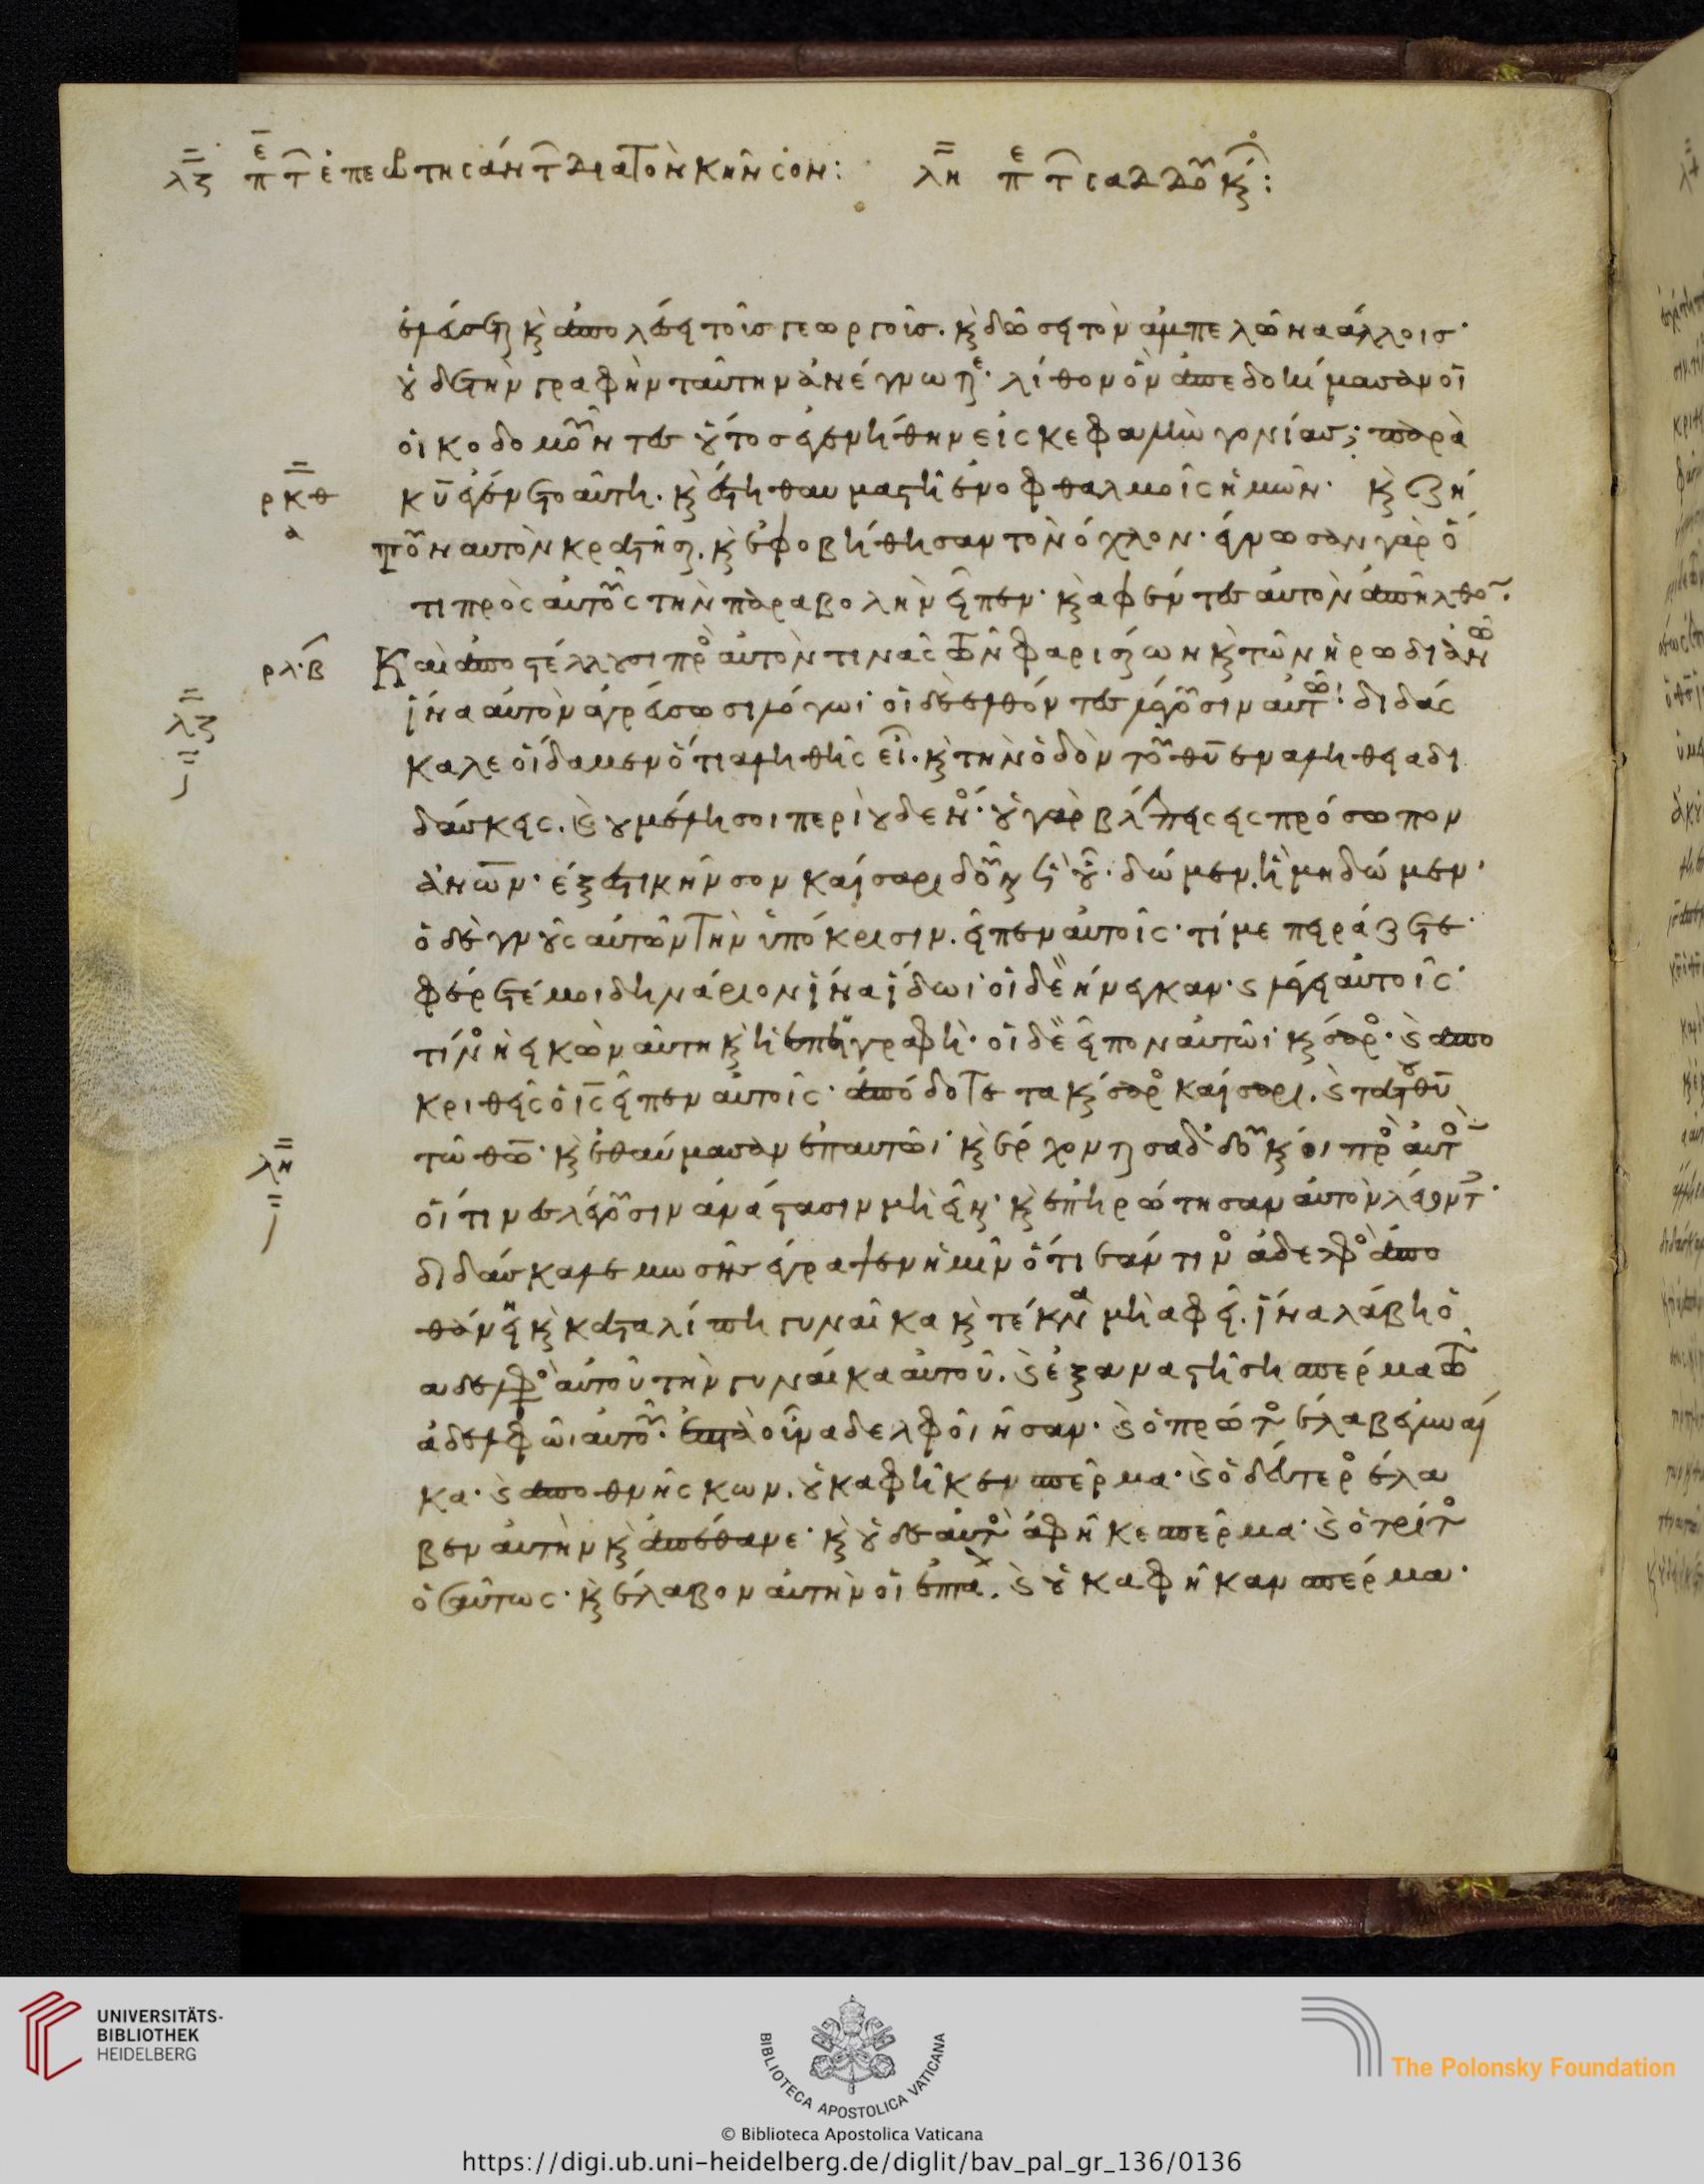 λζ πε τ ἐπερωτησάντ διὰ τὸν κῆνσον: λη πε τ σαδδουκ:
ἐλεύσεται κ ἀπολέσει τοῖς γεωργοῖς. κ δώσει τὸν ἀμπελῶνα ἄλλοις·
οὐδὲ τὴν γραφὴν ταύτην ἀνέγνωτε· λίθον ὃν ἀπεδοκίμασαν οἱ
οἰκοδομοῦντες οὗτος ἐγενήθην εἰς κεφαλὴν γονίας· παρὰ
ρκθ α κ̅υ̅ ἐγένετο αὕτη. κ ἔστι θαυμαστὴ ἐν ὀφθαλμοῖς ἡμῶν· κ ἐζή
τουν αὐτὸν κρατῆσαι. κ ἐφοβήθησαν τὸν ὄχλον· ἔγνωσαν γὰρ ὅ
τι πρὸς αὐτοὺς τὴν παραβολὴν εἶπεν· κ ἀφέντες αὐτὸν ἀπῆλθον.
ρλ·β Καὶ ἀποστέλλουσι πρὸς αὐτόν τινας τῶν φαρισαίων κ τῶν ἡρωδιανῶν
λζ ἵνα αὐτὸν ἀγρεύσωσι λόγωι· οἱ δὲ ἐλθόντες λέγουσιν αὐτῶ· διδάσ
καλε οἴδαμεν ὅτι ἀληθὴς εἶ. κ τὴν ὁδὸν τοῦ θ̅υ̅ ἐν ἀληθεία δι
δάσκεις. κ οὐ μέλη σοι περὶ οὐδενός· οὐ γὰρ βλέπεις εἰς πρόσωπον
ἀν̅ω̅ν· ἔξεστι κῆνσον καίσαρι δοῦναι ἢ οὔ· δώμεν. ἢ μὴ δώμεν·
ὁ δὲ γνοὺς αὐτῶν τὴν ὑπόκρισιν. εἶπεν αὐτοῖς· τί με πειράζετε·
φέρετέ μοι δηνάριον ἵνα ἴδωι· οἱ δὲ ἤνεγκαν. κ λέγει αὐτοῖς·
τίνος ἡ εἰκὼν αὕτη κ ἡ ἐπιγραφή· οἱ δὲ εἶπον αὐτῶι καίσαρος· κ ἀπο
κριθεὶς ὁ ι̅ς̅ εἶπεν αὐτοῖς· ἀπόδοτε τὰ καίσαρος καίσαρι. κ τὰ τοῦ θ̅υ̅
λη τῶ θ̅ω̅· κ ἐθαύμασαν ἐπ αὐτῶι· κ ἔρχονται σαδδουκαῖοι πρὸς αὐτὸν
οἵτινες λέγουσιν ἀνάστασιν μὴ εἶναι· κ ἐπηρώτησαν αὐτὸν λέγοντ·
διδάσκαλε μωσῆς ἔγραψεν ἡμῖν ὅτι ἐάν τινος ἀδελφὸς ἀπο
θάνη κ καταλίπη γυναῖκα κ τέκνα μὴ ἀφῆ. ἵνα λάβη ὁ
ἀδελφὸς αὐτοῦ τὴν γυναῖκα αὐτοῦ. κ ἐξαναστήση σπέρμα τῶ
ἀδελφῶι αὐτοῦ· ἑπτὰ οὖν ἀδελφοὶ ἦσαν· κ ὁ πρῶτος ἔλαβε γυναῖ
κα· κ ἀποθνήσκων. οὐκ ἀφῆκεν σπέρμα· κ ὁ δεύτερος ἔλα
βεν αὐτὴν κ ἀπέθανε· κ οὐδὲ αὐτὸς ἀφῆκε σπέρμα· κ ὁ τρίτος
ὡσαύτως· κ ἔλαβον αὐτὴν οἱ ἑπτά. κ οὐκ ἀφῆκαν σπέρμα·
UNIVERSITÄTS-
BIBLIOTHEK
HEIDELBERG
BIBLIOTECA APOSTOLICA VATICANA
© Biblioteca Apostolica Vaticana
The Polonsky Foundation
https://digi.ub.uni-heidelberg.de/diglit/bav_pal_gr_136/0136